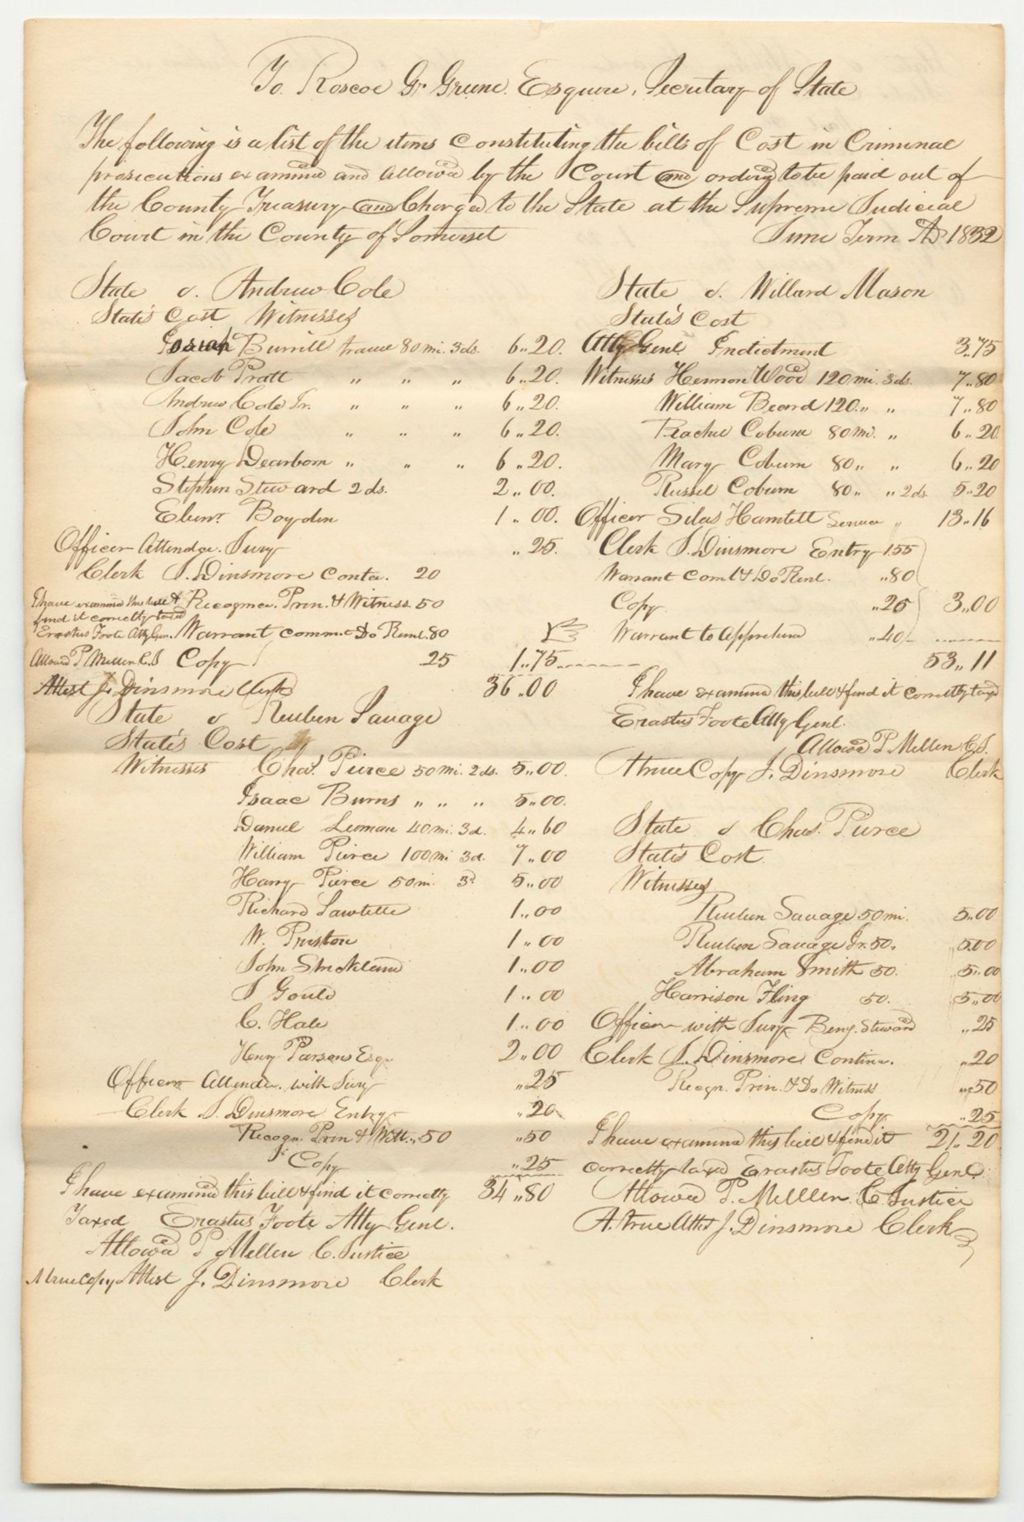 To Roscoe G. Greene Esquire, Secretary of State
The following is a list of the items constituting the bills of Cost in Criminal
prosecutions examined and allowed by the Court and ordered to be paid out of
the County Treasury and Charged to the State at the Supreme Judicial
Court in the County of Somerset June Term AD 1832
State v. Andrew Cole
State's Cost Witnesses
Josiah Burrill travel 80 mi. 3 ds. 6..20.
Jacob Pratt " " " 6..20.
Andrew Cole Jr. " " " 6..20.
John Cole " " " 6..20.
Henry Dearborn " " " 6..20.
Stephen Steward 2 ds. 2..00.
Ebenr. Boyden 1..00.
Officer Attendge. Jury ..25.
Clerk J. Dinsmore Contce. 20
I have examined this bill & Recogncs. Prin. & Witness. 50
find it correctly taxed
Erastus Foote Atty Gen. Warrant comm. & Do Reml. 80
Allowd P Mellen C.J. Copy 25 1..75.
Attest J. Dinsmore Clerk 36..00
State v Reuben Savage
State's Cost
Witnesses Chas. Pierce 50 mi. 2 ds. 5..00.
Isaac Burns " " " 5..00.
Daniel Leman 40 mi. 3 d. 4..60
William Pierce 100 mi 3 d. 7..00
Harry Pierce 50 mi. 3d 5..00
Richard Sawtelle 1..00
W. Preston 1..00
John Strickland 1..00
S Gould 1..00
C. Hale 1..00
Heny Parsons Esqr. 2..00
Officer Attendc. with Jury ..25
Clerk J. Dinsmore Entry ..20
Recogn. Prin & Witt.. 50 ..50
Copy ..25
I have examined this bill & find it correctly 34..80
Taxed Erastus Foote Atty Genl.
Allowed P Mellen C. Justice
A true copy Attest J. Dinsmore Clerk
State v. Willard Mason
State's Cost
Atty Genl Indictment 3.75
Witnesses Hermon Wood 120 mi. 3 ds. 7..80
William Beard 120.. " 7..80
Rachel Coburn 80 mi. " 6..20
Mary Coburn 80.. " 6..20
Russel Coburn 80.. " 2 ds 5..20
Officer Silas Hamlett Service " 13..16
Clerk J. Dinsmore Entry 155
Warrant Coml & Do Reml. ..80
Copy ..25 3..00
Warrant to Apprehend ..40
53..11
I have examined this bill & find it correctly taxed
Erastus Foote Atty Genl.
Allowed P. Mellen C.J.
A true Copy J. Dinsmore Clerk
State v Chas. Pierce
State's Cost
Witnesses
Reuben Savage 50 mi. 5.00
Reuben Savage Jr. 50. 5.00
Abraham Smith 50. 5..00
Harrison Fling 50. 5..00
Officer with Jury Benj. Steward ..25
Clerk J. Dinsmore Contince. ..20
Recgn. Prin. & Do Witness ..50
Copy ..25
I have examined this bill & find it 21..20
correctly taxed Erastus Foote Atty Genl.
Allowed P. Mellen C Justice
A. true Attst J. Dinsmore Clerk